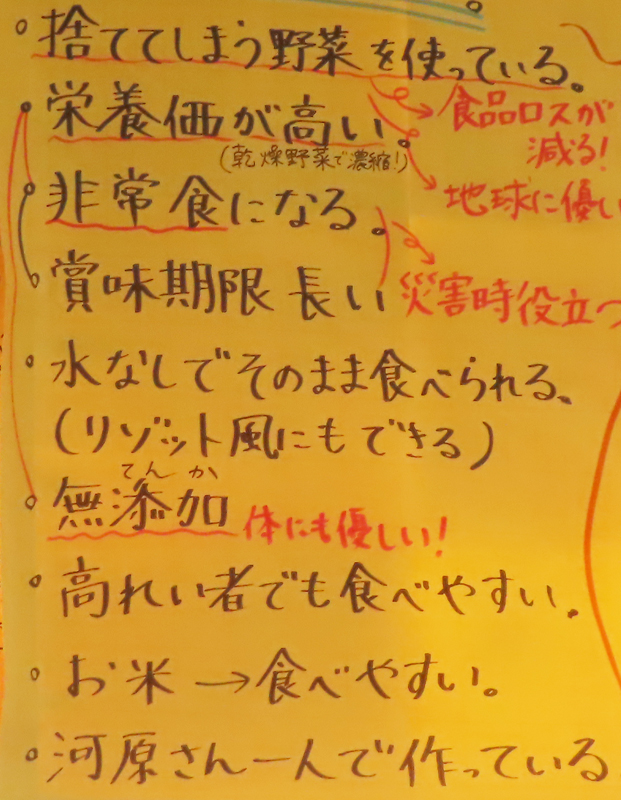 捨ててしまう野菜を使っている。
食品ロスが
減る!
栄養価が高い。
(乾燥野菜で濃縮!)
地球に優し
非常食になる。
賞味期限 長い
災害時役立つ
水なしでそのまま食べられる。
(リゾット風にもできる)
てんか
無添加
体にも優しい!
高れい者でも食べやすい。
お米→食べやすい。
河原さん一人で作っている